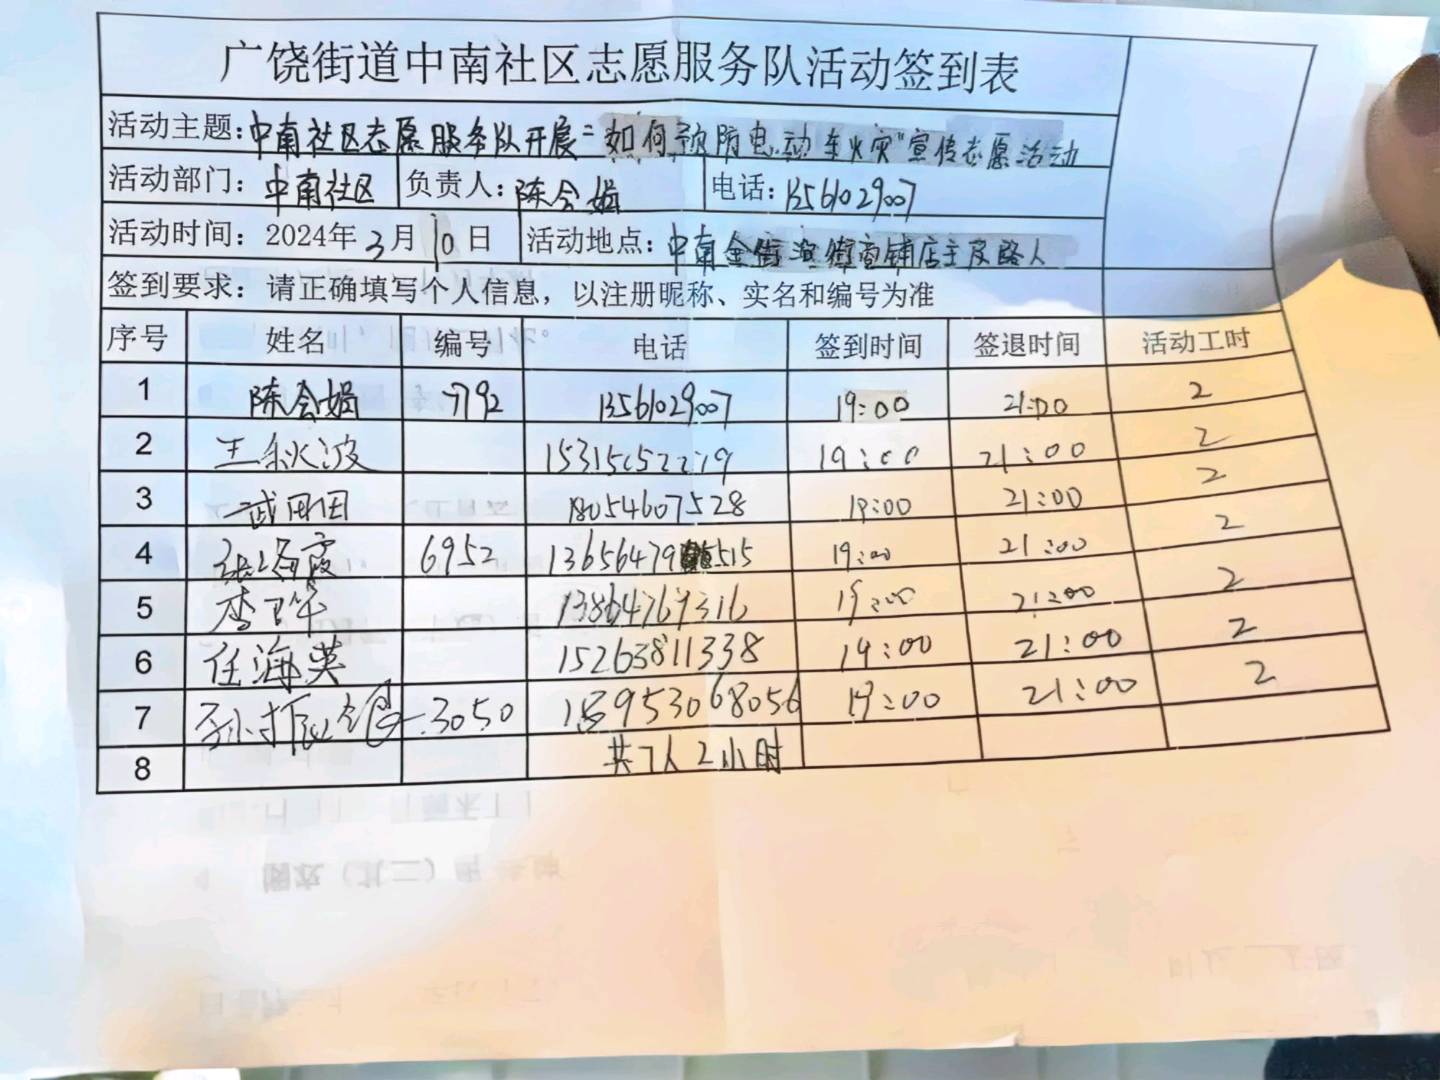 广饶街道中南社区志愿服务队活动签到表
活动主题：中南社区志愿服务队开展"如何预防电动车火灾"宣传志愿活动
活动部门：中南社区 负责人：陈会娟 电话：13561029007
活动时间：2024年3月10日 活动地点：中南金街沿街商铺店主及路人
签到要求：请正确填写个人信息，以注册昵称、实名和编号为准
序号 姓名 编号 电话 签到时间 签退时间 活动工时
1 陈会娟 7792 13561029007 19:00 21:00 2
2 王秋波 19:00 21:00 2
3 武田田 18054607528 19:00 21:00 2
4 霞 6952 13656479515 19:00 21:00 2
5 李 13864769316 19:00 21:00 2
6 任海英 15263811338 19:00 21:00 2
7 孙 3050 15953068056 19:00 21:00 2
8 共7人2小时